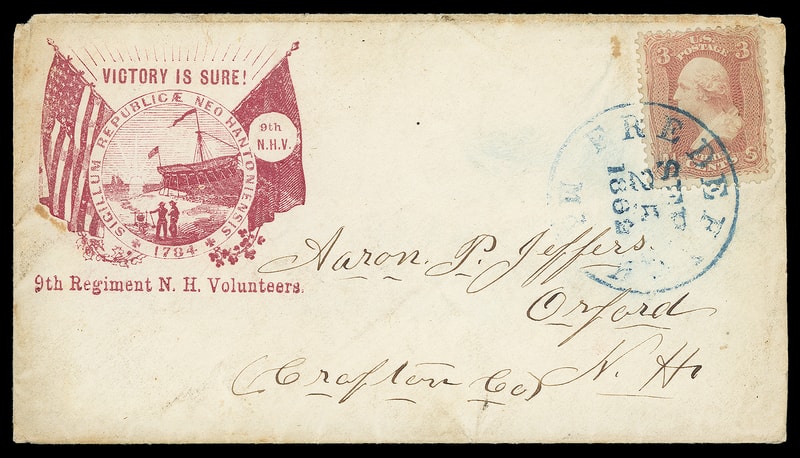 VICTORY IS SURE!
SIGILLUM REIPUBLICÆ NEO HANTONIENSIS
1784
9th
N.H.V.
9th Regiment N. H. Volunteers.
U.S.
POSTAGE
3 3
CENTS
FREDERI
SEP
25
1862
M
Aaron. P. Jeffers.
Orford
(Crafton Co) N. H.